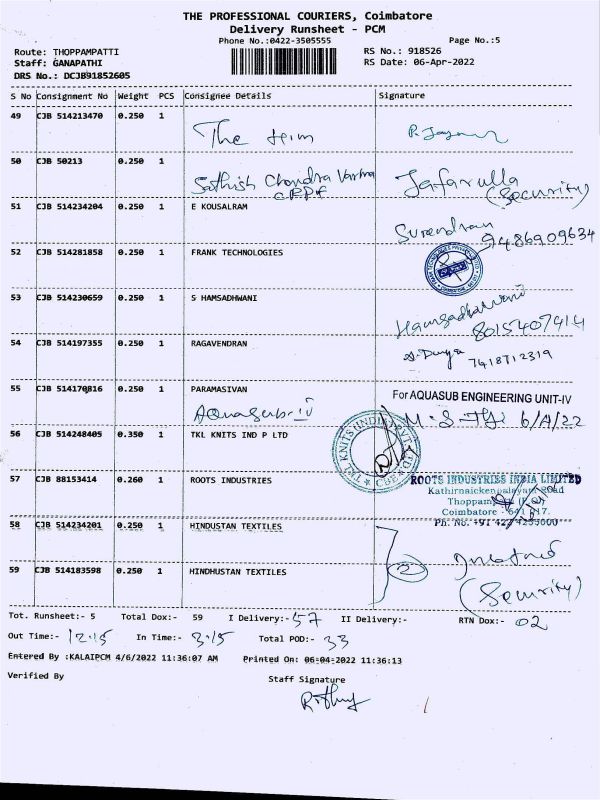 THE PROFESSIONAL COURIERS, Coimbatore
Delivery Runsheet - PCM
Phone No.:0422-3505555
Page No.:5
Route: THOPPAMPATTI
RS No.: 918526
Staff: GANAPATHI
RS Date: 06-Apr-2022
DRS No.: DCJB91852605
S No Consignment No Weight PCS Consignee Details Signature
49 CJB 514213470 0.250 1
The
50 CJB 50213 0.250 1
Sathish Chandra Varma Jafarulla
CRPF (Security)
51 CJB 514234204 0.250 1 E KOUSALRAM
Surendran
9486909634
52 CJB 514281858 0.250 1 FRANK TECHNOLOGIES
53 CJB 514230659 0.250 1 S HAMSADHWANI
Hamsadharwani
8015407414
54 CJB 514197355 0.250 1 RAGAVENDRAN
7418712319
55 CJB 514170816 0.250 1 PARAMASIVAN
For AQUASUB ENGINEERING UNIT-IV
Aquasub-IV
6/4/22
56 CJB 514248405 0.350 1 TKL KNITS IND P LTD
TKL KNITS (INDIA) PVT LTD
CBE
57 CJB 88153414 0.260 1 ROOTS INDUSTRIES
ROOTS INDUSTRIES INDIA LIMITED
Kathirnaickenpalayam Road
Thoppampatti (P.O)
Coimbatore - 641 017.
Ph. No. +91 422 4233000
58 CJB 514234201 0.250 1 HINDUSTAN TEXTILES
2
59 CJB 514183598 0.250 1 HINDHUSTAN TEXTILES
(Security)
Tot. Runsheet:- 5 Total Dox:- 59 I Delivery:- 57 II Delivery:- RTN Dox:- 02
Out Time:- 12:15 In Time:- 3:15 Total POD:- 33
Entered By :KALAIPCM 4/6/2022 11:36:07 AM Printed On: 06-04-2022 11:36:13
Verified By
Staff Signature